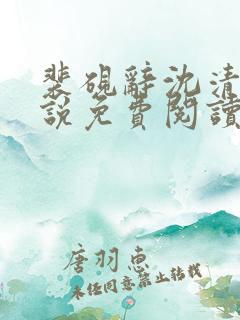 裴硯辭沈清
說免費閱讀
唐羽惠
未經同意禁止轉載